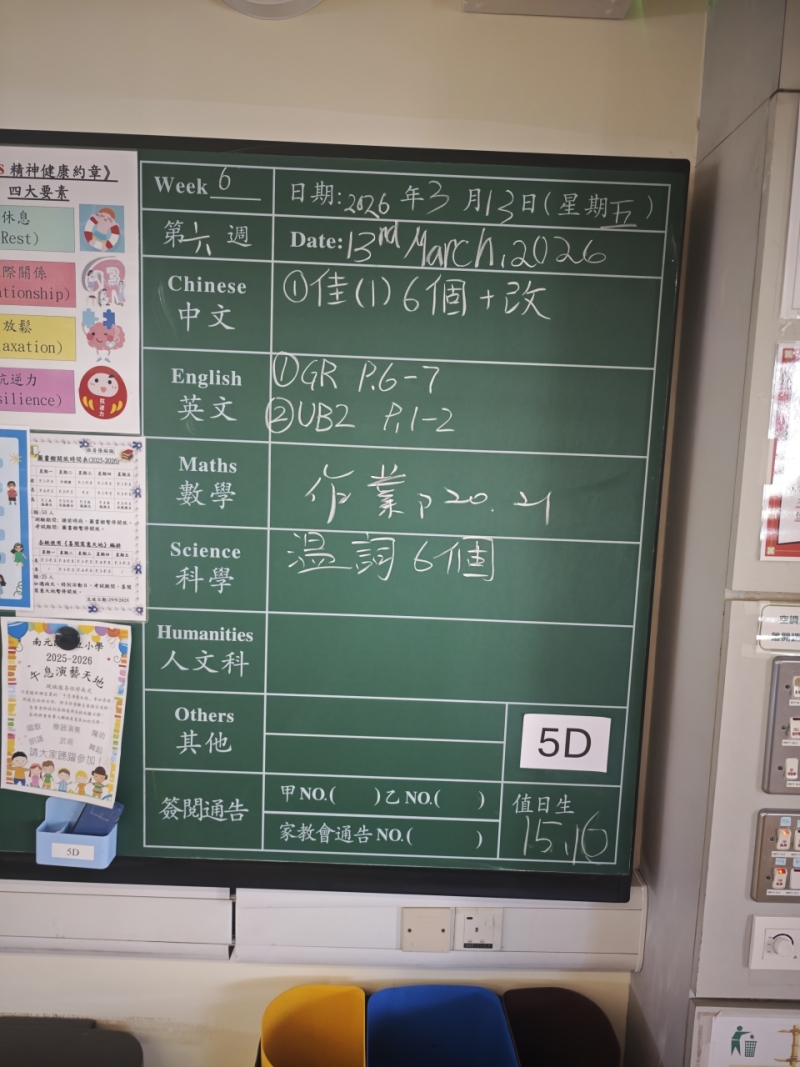 Week 6
日期:2026年3月13日(星期五)
第六週
Date:13rd March,2026
Chinese
中文
①佳(1)6個+改
English
英文
①GR P.6-7
②UB2 P.1-2
Maths
數學
作業p20.21
Science
科學
温詞6個
Humanities
人文科
Others
其他
5D
簽閱通告
甲NO.( )乙NO.( )
家教會通告NO.( )
值日生
15,16
精神健康約章》
四大要素
休息
Rest)
際關係
ationship)
放鬆
axation)
抗逆力
silience)
圖書館開放時間表(2025-2026)
2025-2026
午息演藝天地
請大家踴躍參加!
5D
空調